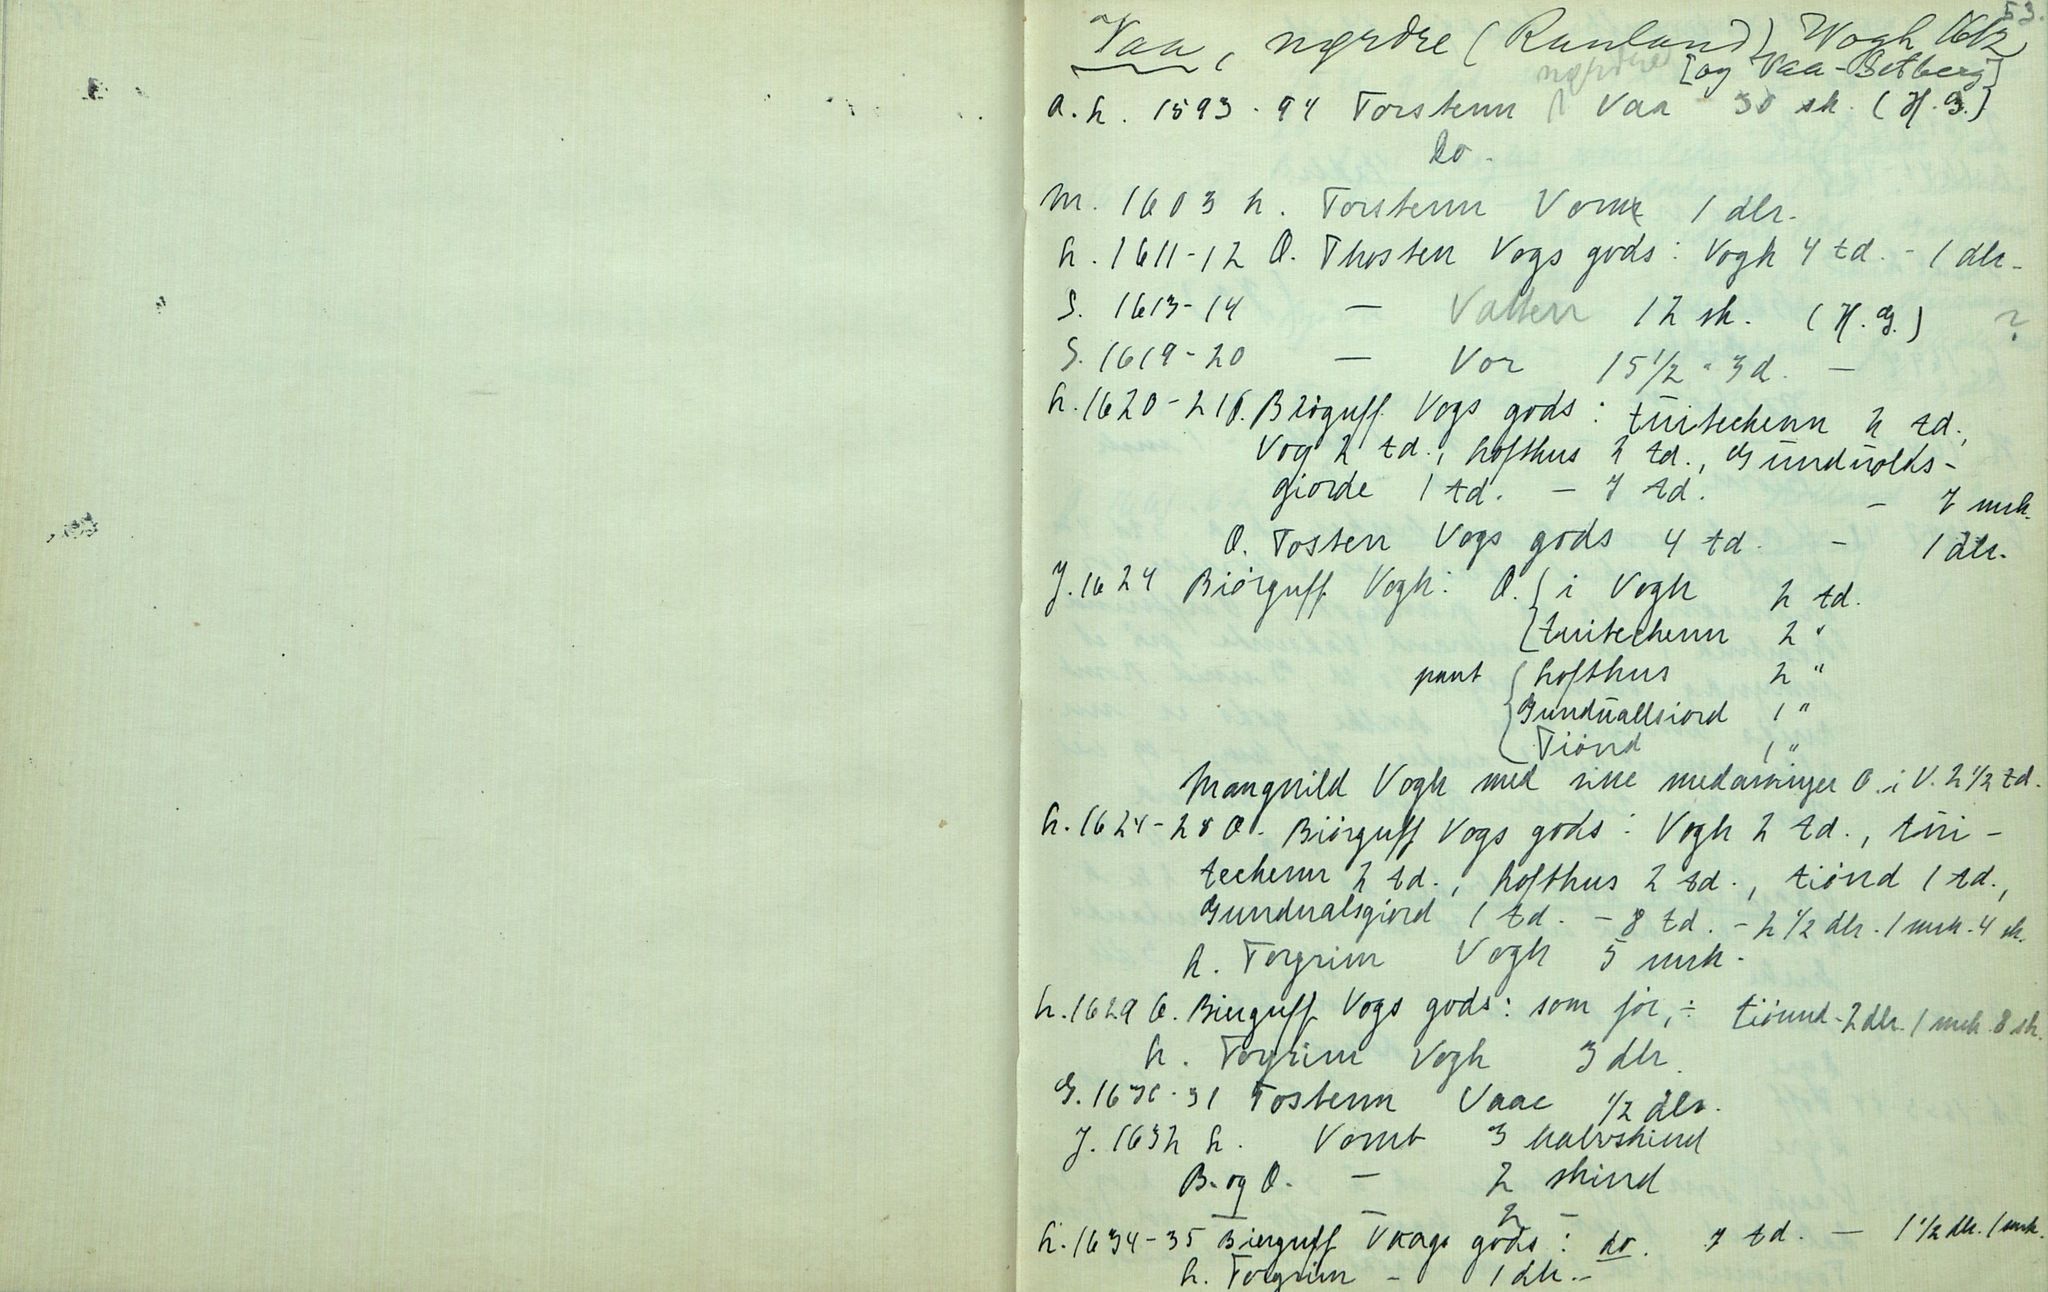 53.
Vaa, nørdre (Rauland) Wogh 1612
[og Vaa-Betberg]
nørdre
a. h. 1593-94 Torstenn Vaa 30 sk. (H. G.)
do.
M. 1603 h. Torstenn 1 dlr.
h. 1611-12 O. Thosten Vogs gods: Vogh 4 td. - 1 dlr.
S. 1613-14 — Vatten 12 sk. (H. G.) ?
S. 1619-20 — Vor 15 1/2 - 3 d. —
h. 1620-21 O. Biøguff Vogs gods: tuitechenn 2 td.,
Vog 2 td., hofthus 2 td., Gunduolds-
giorde 1 td. — 7 td. — 7 mrk.
O. Tosten Vogs gods 4 td. — 1 dlr.
J. 1624 Biørguff Vogh: O. { i Vogh 2 td.
tuitechenn 2 "
pant { hofthus 2 "
Gunduallsiord 1 "
Tiønd 1 "
Mangnild Vogh med sine medarvinger O. i V. 2 1/2 td.
h. 1624-28 O. Biørguff Vogs gods: Vogh 2 td., tui-
techenn 2 td., hofthus 2 td., tiønd 1 td.,
Gundualsgiord 1 td. — 8 td. — 2 1/2 dlr. 1 mrk. 4 sk.
h. Torgrim Vogh 5 mrk.
h. 1629 O. Bierguff Vogs gods: som før, ÷ tiønnd - 2 dlr. 1 mrk. 8 sk.
h. Torgrim Vogh 3 dlr.
G. 1630-31 Tostenn Vaae 1/2 dlr.
J. 1632 h. Vomt 3 kalvskind
B. og O. — 2 skind
— — 2 —
h. 1634-35 Bierguff Vaags gods: do. 7 td. — 1 1/2 dlr. 1 mrk.
h. Torgrim - 1 dlr. -